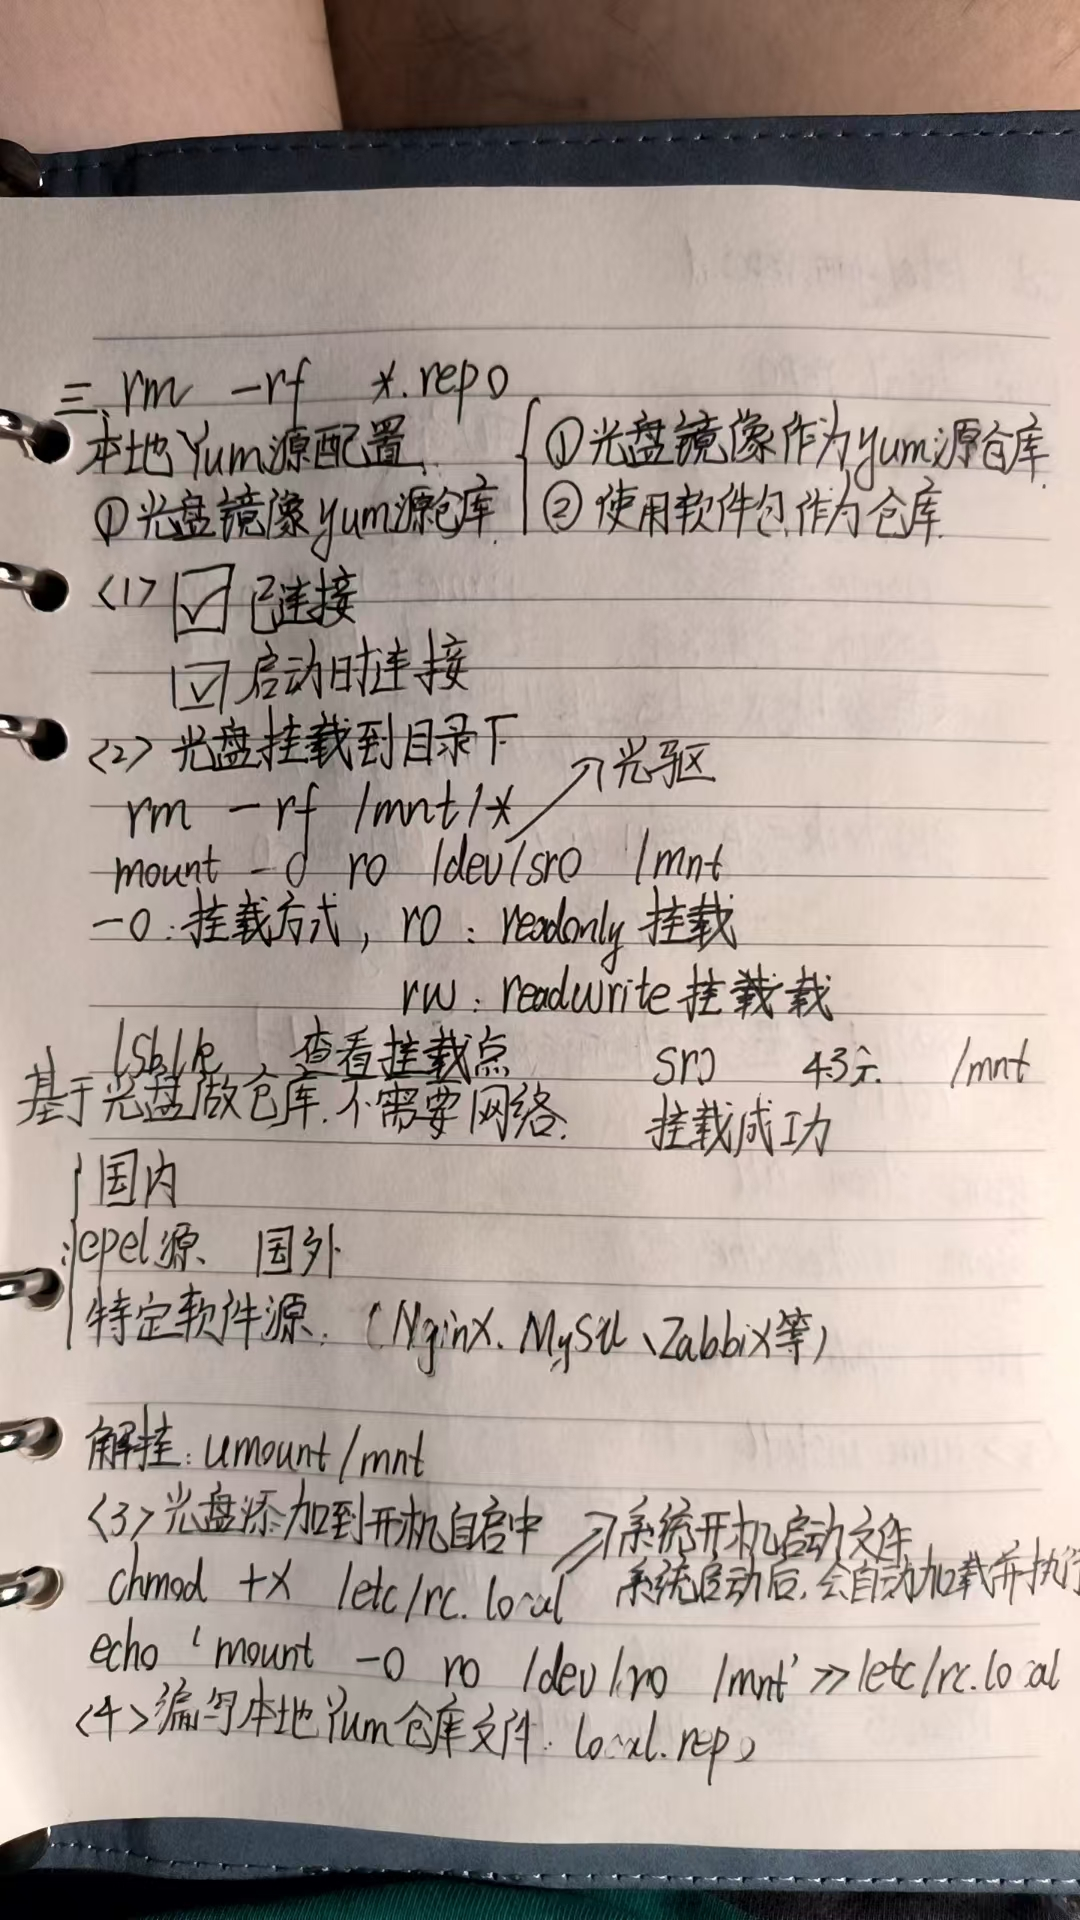 三、rm -rf *.repo
本地Yum源配置.
①光盘镜像作为yum源仓库.
②使用软件包作为仓库.
①光盘镜像yum源仓库.
<1> ☑ 已连接
☑ 启动时连接
<2> 光盘挂载到目录下
rm -rf /mnt/*
光驱
mount -o ro /dev/sr0 /mnt
-o:挂载方式, ro: readonly 挂载
rw: readwrite 挂载载
lsblk 查看挂载点 sr0 /mnt
基于光盘做仓库.不需要网络. 挂载成功
国内
epel源、国外
特定软件源.(Nginx、MySQL、Zabbix等)
解挂: umount /mnt
<3>光盘添加到开机自启中 系统开机启动文件
chmod +x /etc/rc.local 系统启动后,会自动加载并执行
echo 'mount -o ro /dev/ro /mnt' >> /etc/rc.local
<4>编写本地Yum仓库文件. local.repo